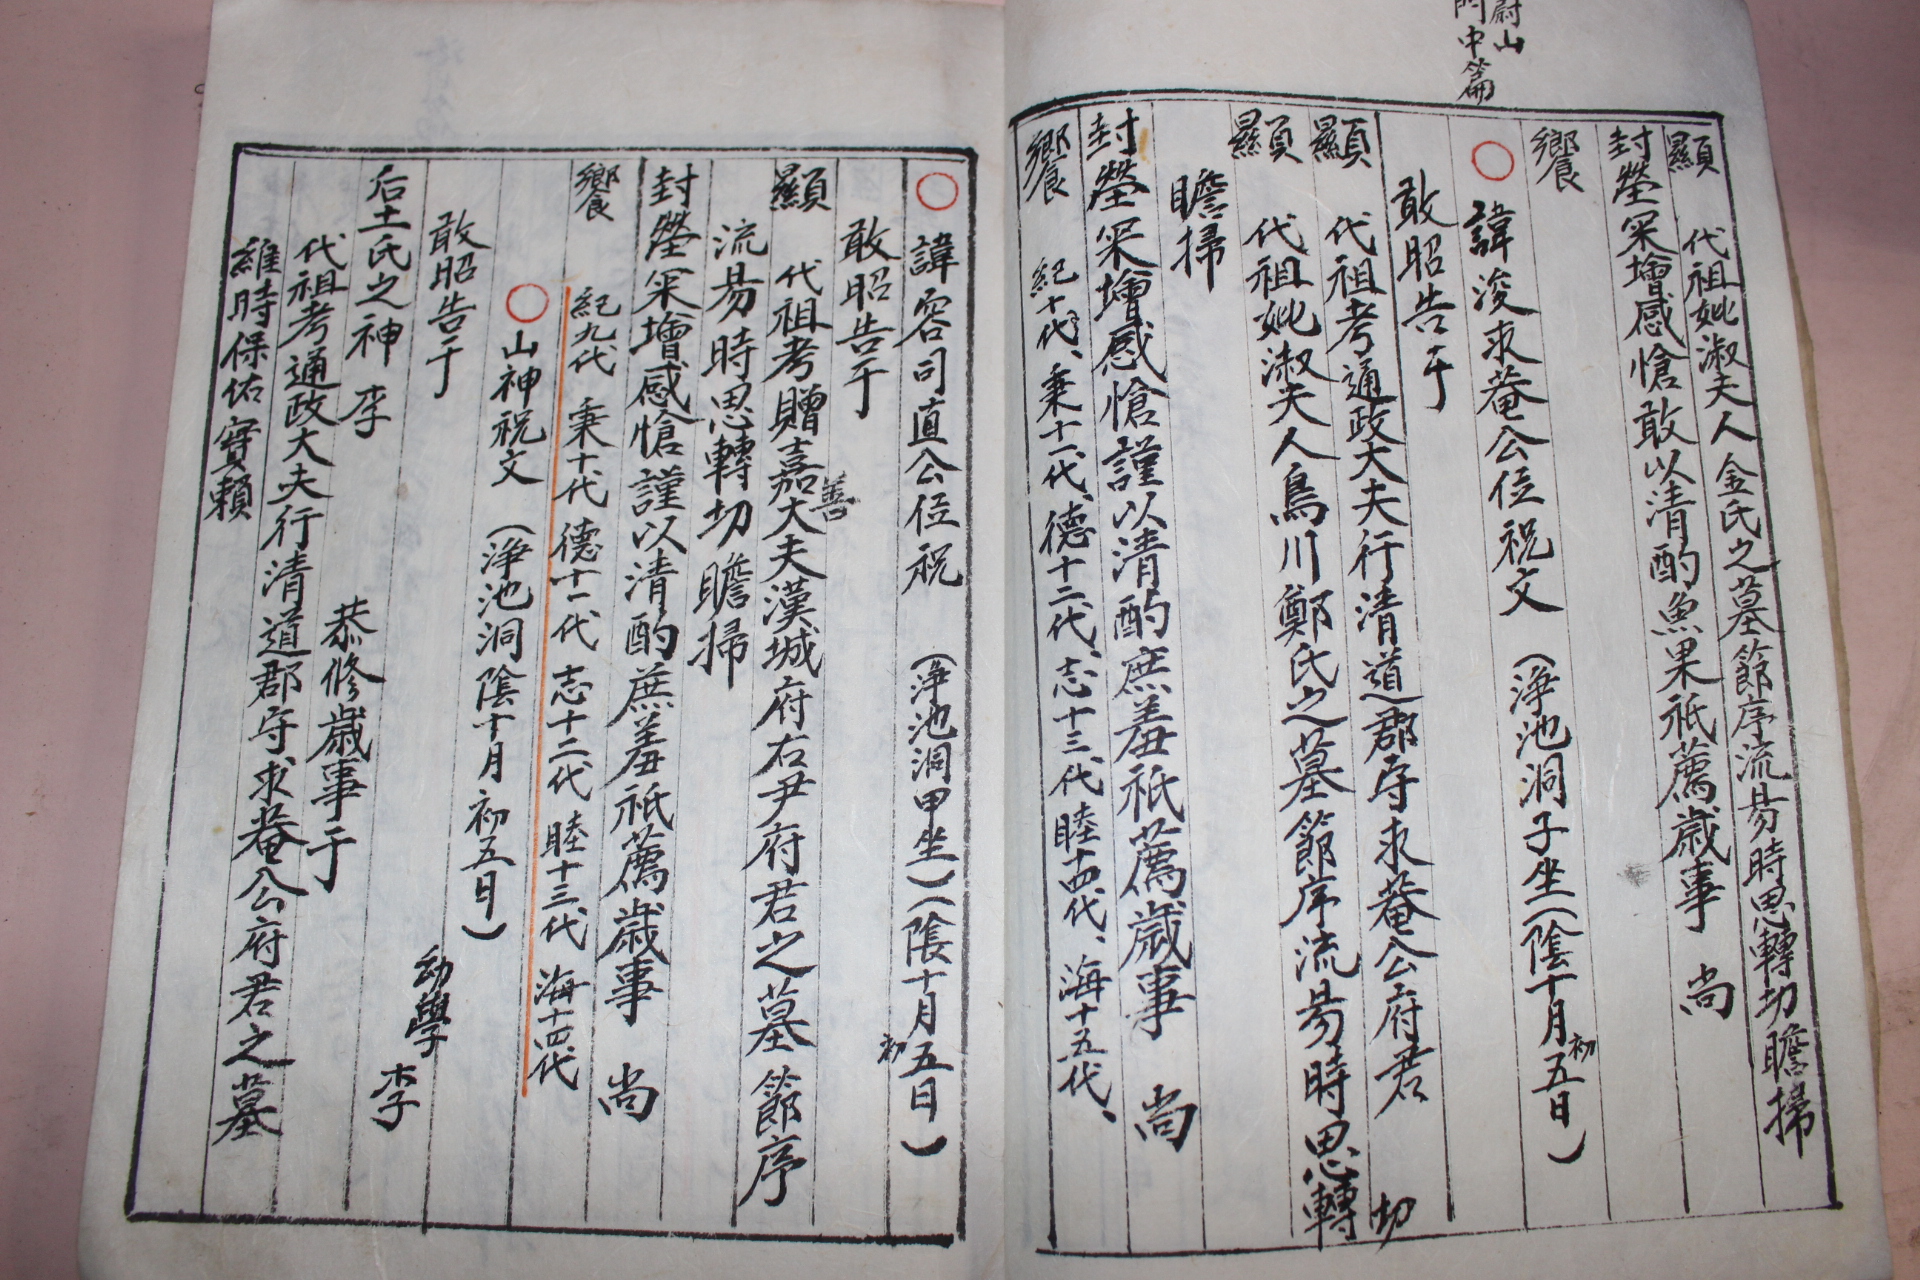 蔚山
門中篇
顯 代祖妣淑夫人金氏之墓節序流易時思轉切瞻掃
封塋采增感愴敢以清酌魚果祇薦歲事 尚
饗
○諱浚求菴公位祝文 (浄池洞子坐(陰十月初五日)
敢昭告于
顯 代祖考通政大夫行清道郡守求菴公府君
顯 代祖妣淑夫人烏川鄭氏之墓節序流易時思轉切
瞻掃
封塋采增感愴謹以清酌庶羞祇薦歲事 尚
饗 紀十代、秉十一代、德十二代、志十三代睦十四代、海十五代、
○諱容司直公位祝 (浄池洞甲坐)(陰十月初五日)
敢昭告于
顯 代祖考贈嘉善大夫漢城府右尹府君之墓節序
流易時思轉切瞻掃
封塋采增感愴謹以清酌庶羞祇薦歲事 尚
饗 紀九代 秉十代 德十一代 志十二代 睦十三代 海十四代
○山神祝文 (浄池洞陰十月初五日)
敢昭告于 幼學 李
后土氏之神 李 恭修歲事于
代祖考通政大夫行清道郡守求菴公府君之墓
維時保佑實賴